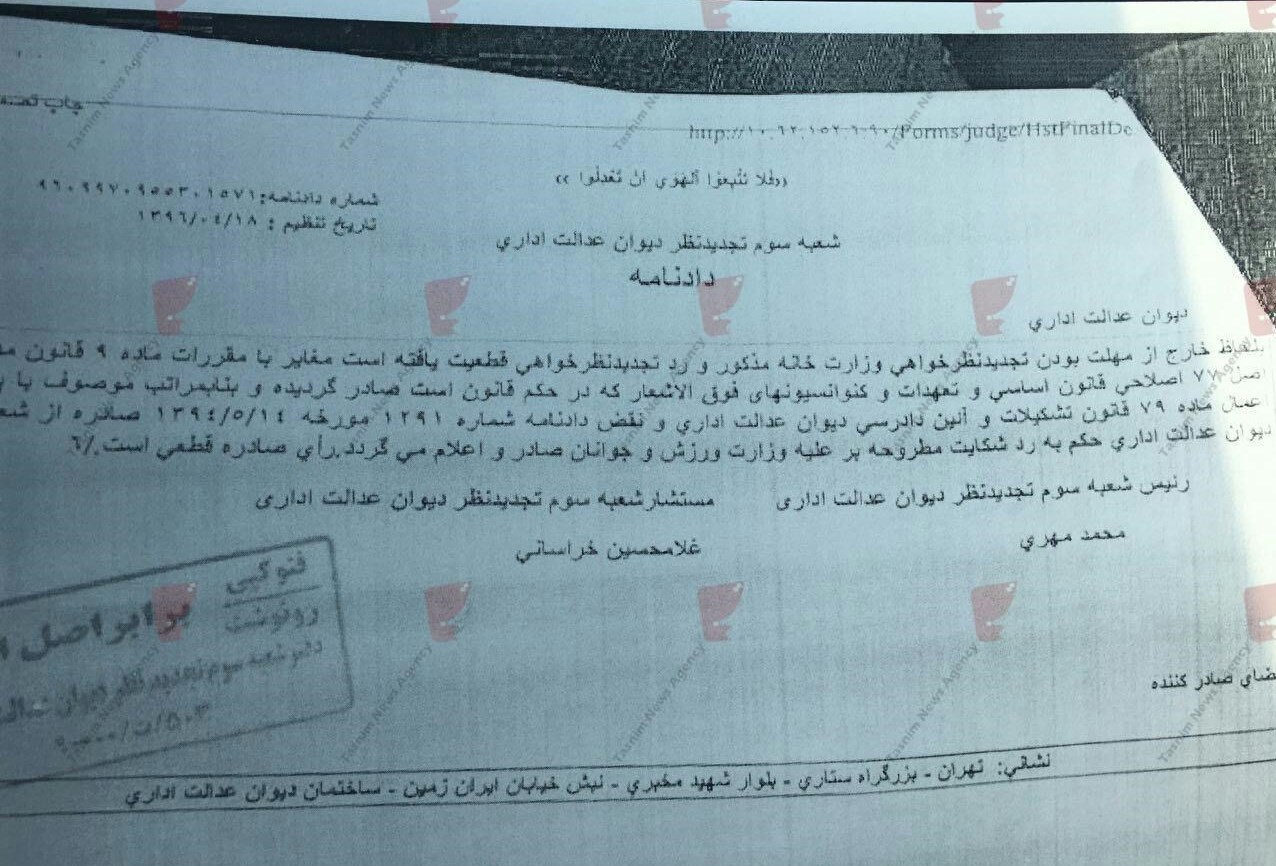 چاپ
http://۱۰.۶۲.۱۵۲.۶:۹۰/Forms/judge/HstFinalDe
««فلا تتبعوا الهوى ان تعدلوا»»
شماره دادنامه: ۹۶۰۹۹۷۰۹۵۵۳۰۱۵۷۱
تاريخ تنظيم : ۱۳۹۶/۰۴/۱۸
شعبه سوم تجديدنظر ديوان عدالت اداري
دادنامه
ديوان عدالت اداري
بلحاظ خارج از مهلت بودن تجديدنظرخواهي وزارت خانه مذكور و رد تجديدنظرخواهي قطعيت يافته است مغاير با مقررات ماده ۹ قانون
اصل ۷۷ اصلاحي قانون اساسي و تعهدات و كنوانسيونهاي فوق الاشعار كه در حكم قانون است صادر گرديده و بنابمراتب موصوف با
اعمال ماده ۷۹ قانون تشكيلات و آئين دادرسي ديوان عدالت اداري و نقض دادنامه شماره ۱۲۹۱ مورخه ۱۳۹٤/٥/۱٤ صادره از
ديوان عدالت اداري حكم به رد شكايت مطروحه بر عليه وزارت ورزش و جوانان صادر و اعلام مي گردد.رأي صادره قطعي است./۶
رئيس شعبه سوم تجديدنظر ديوان عدالت اداری مستشارشعبه سوم تجديدنظر ديوان عدالت اداری
محمد مهري غلامحسين خراساني
فتوکپی
رونوشت
برابر اصل
دفتر شعبه سوم تجدید نظر دیوان عدالت
صادر كننده
نشاني: تهران - بزرگراه ستاري - بلوار شهيد مخبري - نبش خيابان ايران زمين - ساختمان ديوان عدالت اداري
Tasnim News Agency